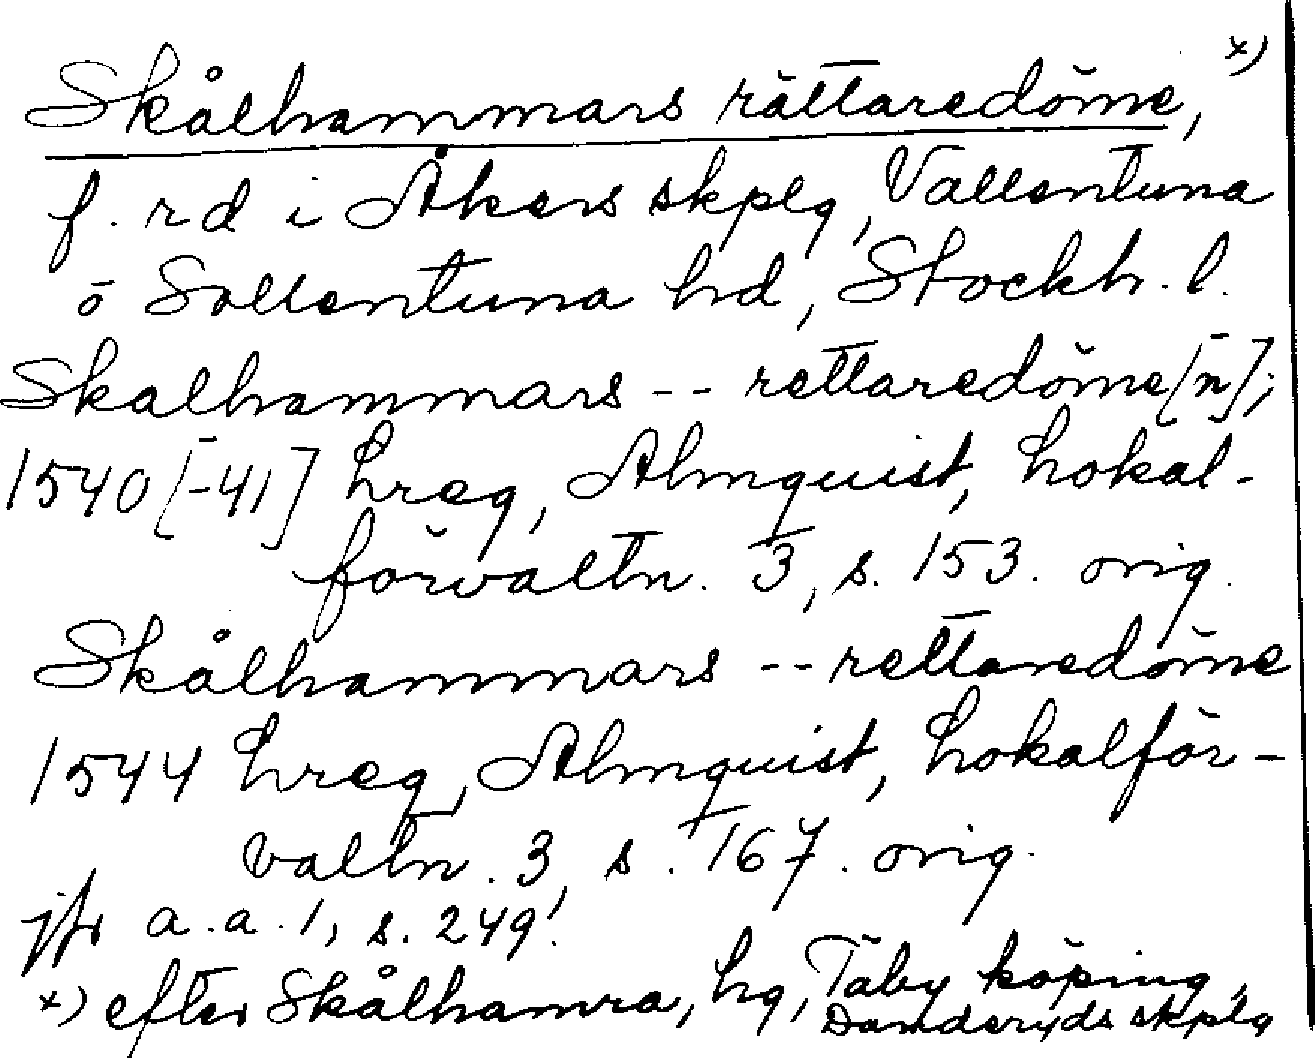 Skålhammars rättaredöme, x)
f. rd i Åkers skplg, Vallentuna
o Sollentuna hd, Stockh. l.
Skalhammars -- rettaredöme[n];
1540[-41] hreg, Almquist, Lokal-
förvaltn. 3, s. 153. orig.
Skålhammars -- rettaredöme
1544 hreg, Almquist, Lokalför-
valtn. 3, s. 167. orig.
jfr a.a. 1, s. 249!
x) efter Skålhamra, hg, Täby köping,
Danderyds skplg